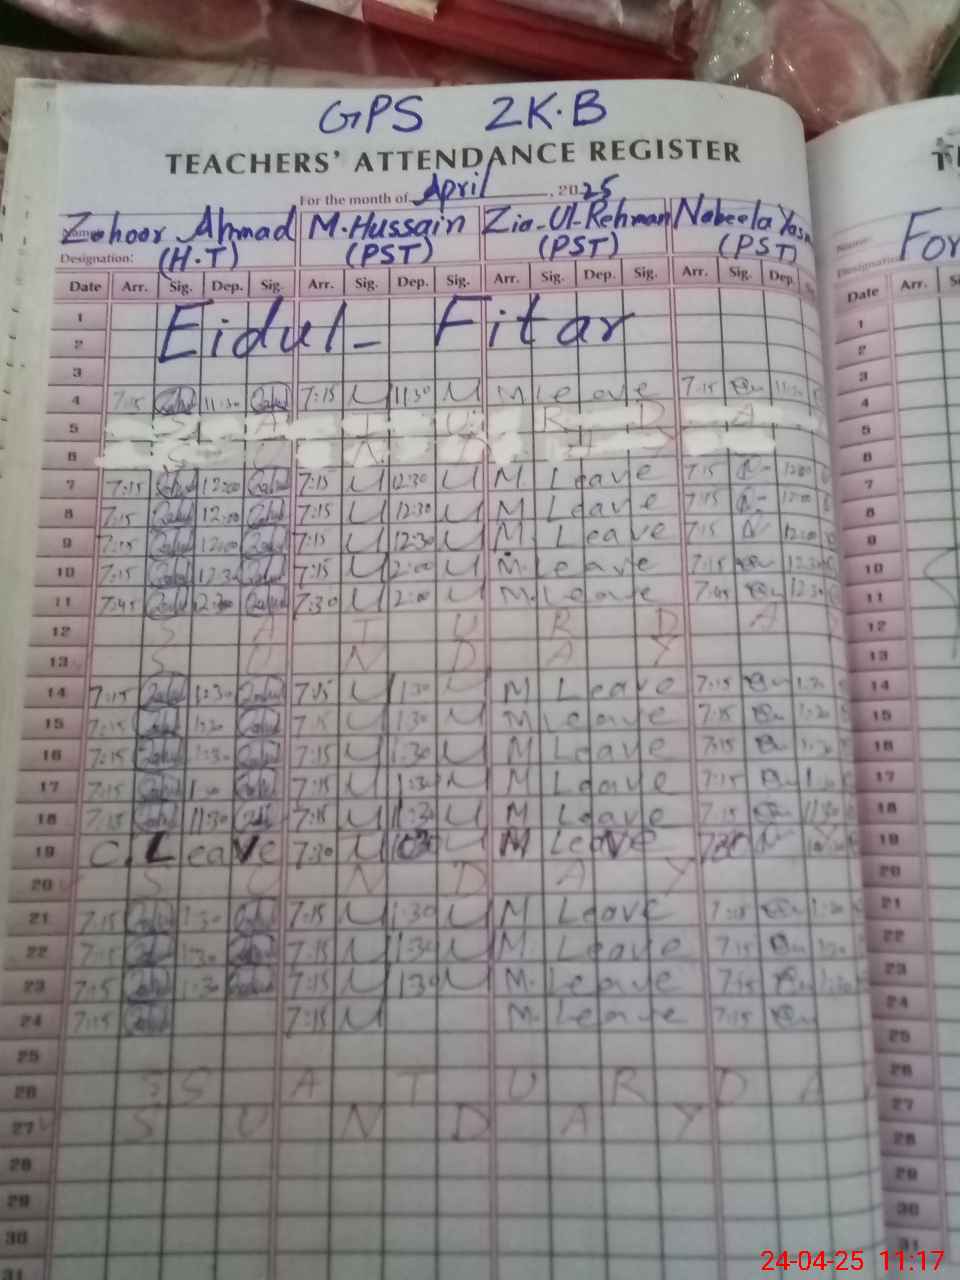 GPS 2K.B
TEACHERS' ATTENDANCE REGISTER
For the month of April, 2025
Name: Zahoor Ahmad M.Hussain Zia-Ul-Rehman Nabeela
Designation: (H.T) (PST) (PST) (PST)
Date Arr. Sig. Dep. Sig. Arr. Sig. Dep. Sig. Arr. Sig. Dep. Sig. Arr. Sig. Dep.
1
2 Eidul-Fitar
3
4 7:15 11:30 7:15 11:30 M Leave 7:15
5 S A T U R D A
6 S U N D A Y
7 7:15 12:00 7:15 12:30 M Leave 7:15 12:00
8 7:15 12:00 7:15 12:30 M Leave 7:15 12:00
9 7:15 12:00 7:15 12:30 M. Leave 7:15 12:00
10 7:15 12:30 7:15 2:00 M. Leave 7:15 12:30
11 7:45 12:30 7:30 2:00 M. Leave 7:45 12:30
12 S A T U R D A
13 S U N D A Y
14 7:15 1:30 7:15 1:30 M Leave 7:15 1:30
15 7:15 1:30 7:15 1:30 M. Leave 7:15 1:30
16 7:15 1:30 7:15 1:30 M Leave 7:15 1:30
17 7:15 7:15 1:30 M Leave 7:15
18 7:15 11:30 7:15 11:30 M Leave 7:15 11:30
19 C. Leave 7:30 M Leave
20 S U N D A Y
21 7:15 1:30 7:15 1:30 M Leave 7:15 1:30
22 7:15 1:30 7:15 1:30 M. Leave 7:15 1:30
23 7:15 1:30 7:15 1:30 M. Leave 7:15 1:30
24 7:15 7:15 M. Leave 7:15
25
26 S S A T U R D A
27 S U N D A Y
28
29
30
31
For
Name:
Designation
Date Arr.
1
2
3
4
5
6
7
8
9
10
11
12
13
14
15
16
17
18
19
20
21
22
23
24
25
26
27
28
29
30
31
24-04-25 11:17